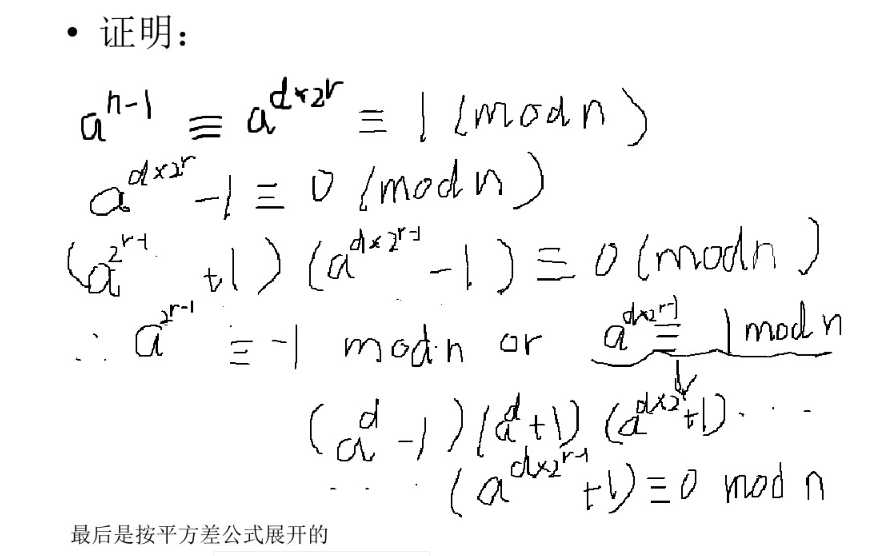 • 证明：
a^{n-1} ≡ a^{d×2^r} ≡ 1 (mod n)
a^{d×2^r} -1 ≡ 0 (mod n)
(a^{2^{r-1}} +1) (a^{d×2^{r-1}} -1) ≡ 0 (mod n)
∴ a^{2^{r-1}} ≡ -1 mod n or a^{d×2^{r-1}} ≡ 1 mod n
(a^d -1) (a^d +1) (a^{d×2} +1) ...
... (a^{d×2^{r-1}} +1) ≡ 0 mod n
最后是按平方差公式展开的